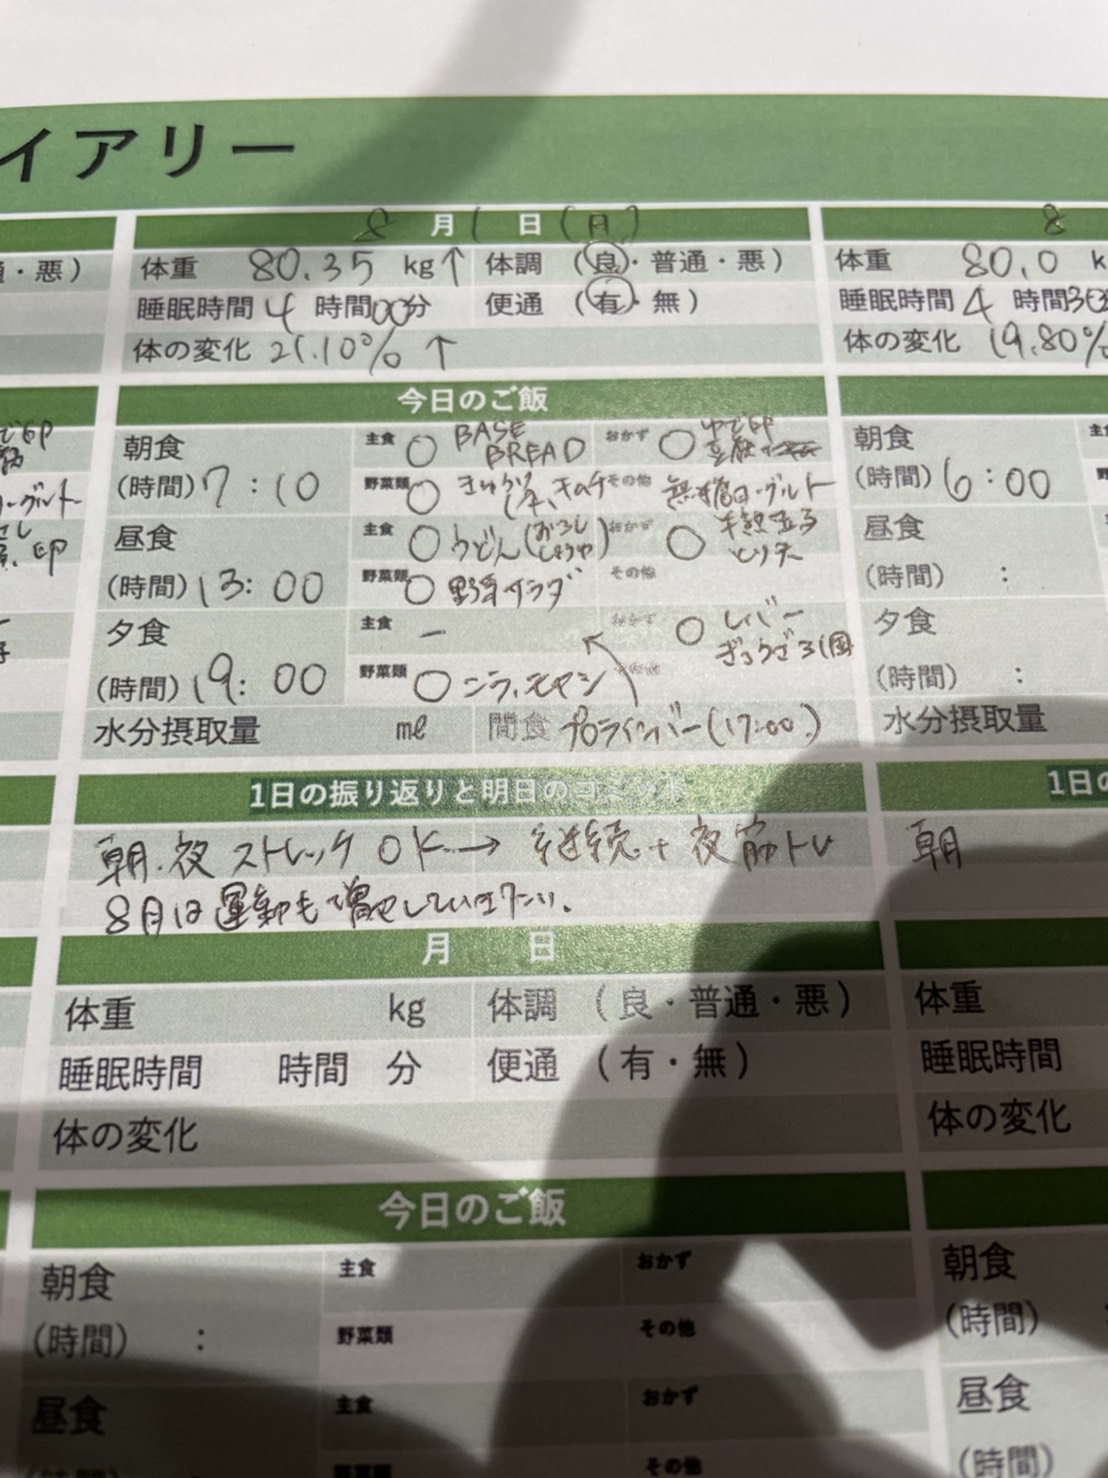 イアリー
通・悪)
8月1日(月)
体重 80.35 kg↑ 体調 (良・普通・悪)
睡眠時間 4 時間00分 便通 (有・無)
体の変化 21.10% ↑
今日のご飯
朝食 主食 ○ BASE BREAD おかず ○ ゆで卵
(時間) 7:10 野菜類 ○ きゅうり キムチ その他 無糖ヨーグルト
昼食 主食 ○ うどん(おろし しょうゆ) おかず ○ 半熟玉子 とり天
(時間) 13:00 野菜類 ○ 野菜サラダ その他
夕食 主食 ー おかず ○ レバー ぎょうざ3個
(時間) 19:00 野菜類 ○ ニラ、モヤシ
水分摂取量 ml 間食 プロテインバー(17:00)
1日の振り返りと明日のコミット
朝・夜 ストレッチ OK → 継続+夜筋トレ
8月は運動も増やしていきたい。
月 日
体重 kg 体調 (良・普通・悪)
睡眠時間 時間 分 便通 (有・無)
体の変化
今日のご飯
朝食 主食 おかず
(時間) : 野菜類 その他
昼食 主食 おかず
(時間) : 野菜類 その他
8
体重 80.0 k
睡眠時間 4 時間30
体の変化 19.80%
朝食 主
(時間) 6:00
昼食
(時間) :
夕食
(時間) :
水分摂取量
1日の
朝
体重
睡眠時間
体の変化
朝食
(時間)
昼食
(時間)